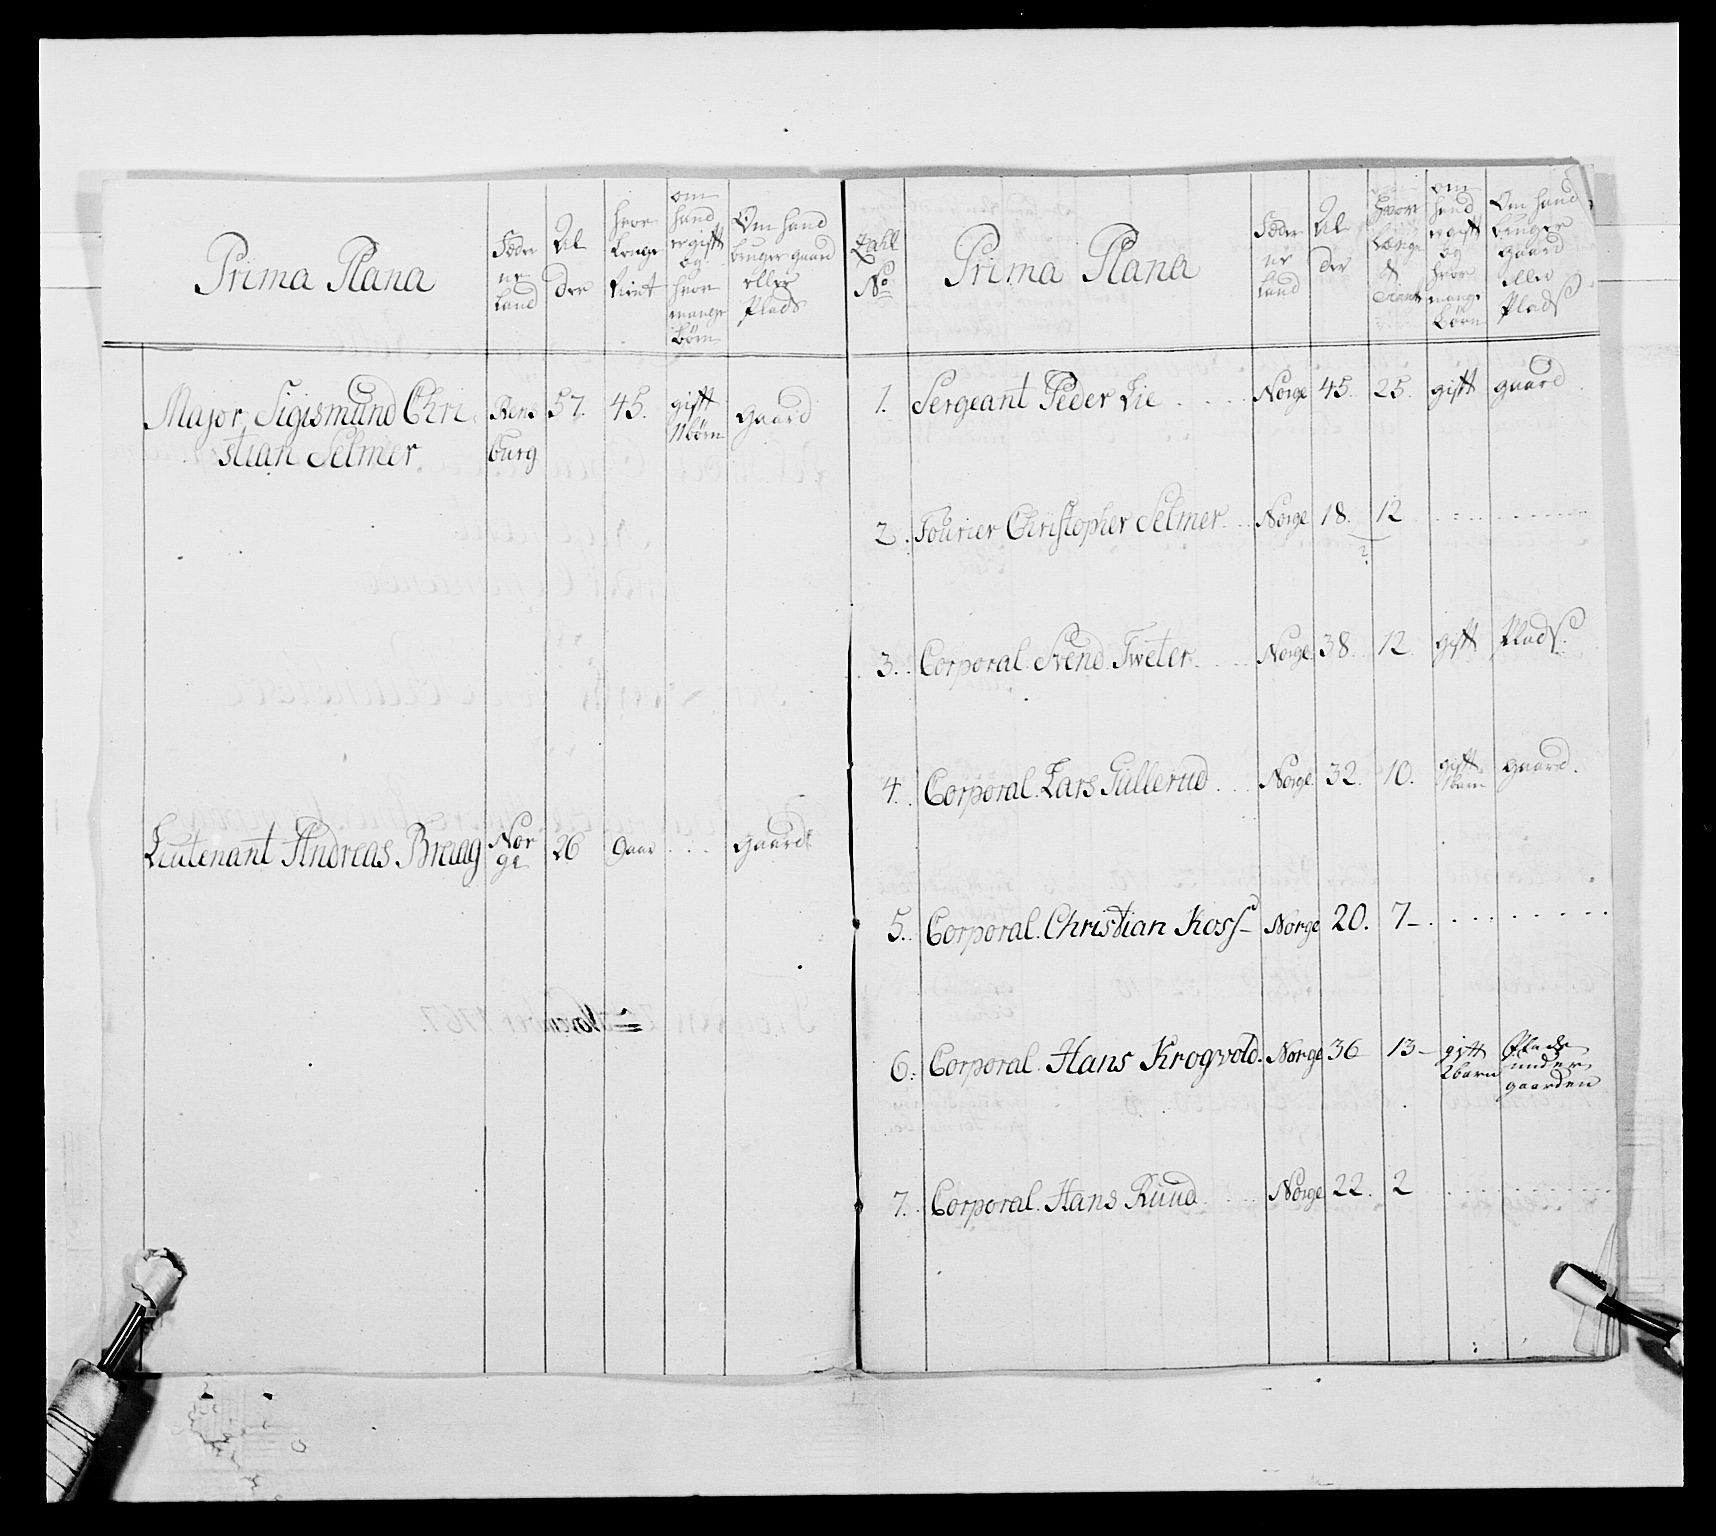 Prima Plana
Føde
ne
Land
Al
der
hvor
Længe
tient
om
hand
er gift
og
hvor
mange
børn
Om hand
bruger gaard
eller
Plads
Major, Sigismund Chri
stian Selmer
Rens
burg
57.
45.
gift
11 børn
gaard
Lieutenant Andreas Braag
Nor
ge
26
9 aar
gaard
Zahl
No
Prima Plana
Føde
ne
Land
Al
der
hvor
Længe
tient
om
hand
er gift
og
hvor
mange
børn
Om hand
bruger
gaard
eller
Plads
1. Sergeant Peder Lie Norge 45. 25. gift gaard
2. Fourier Christopher Selmer Norge 18. 12
?
3. Corporal Svend Tweter Norge 38 12 gift Plads
4. Corporal Lars Gullerud Norge 32. 10. gift gaard.
1 barn
5. Corporal. Christian Koss Norge 20. 7
6. Corporal. Hans Krogvold. Norge 36 13 gift Plads
2 barn under
gaarden
7. Corporal. Hans Ruud Norge 22. 2